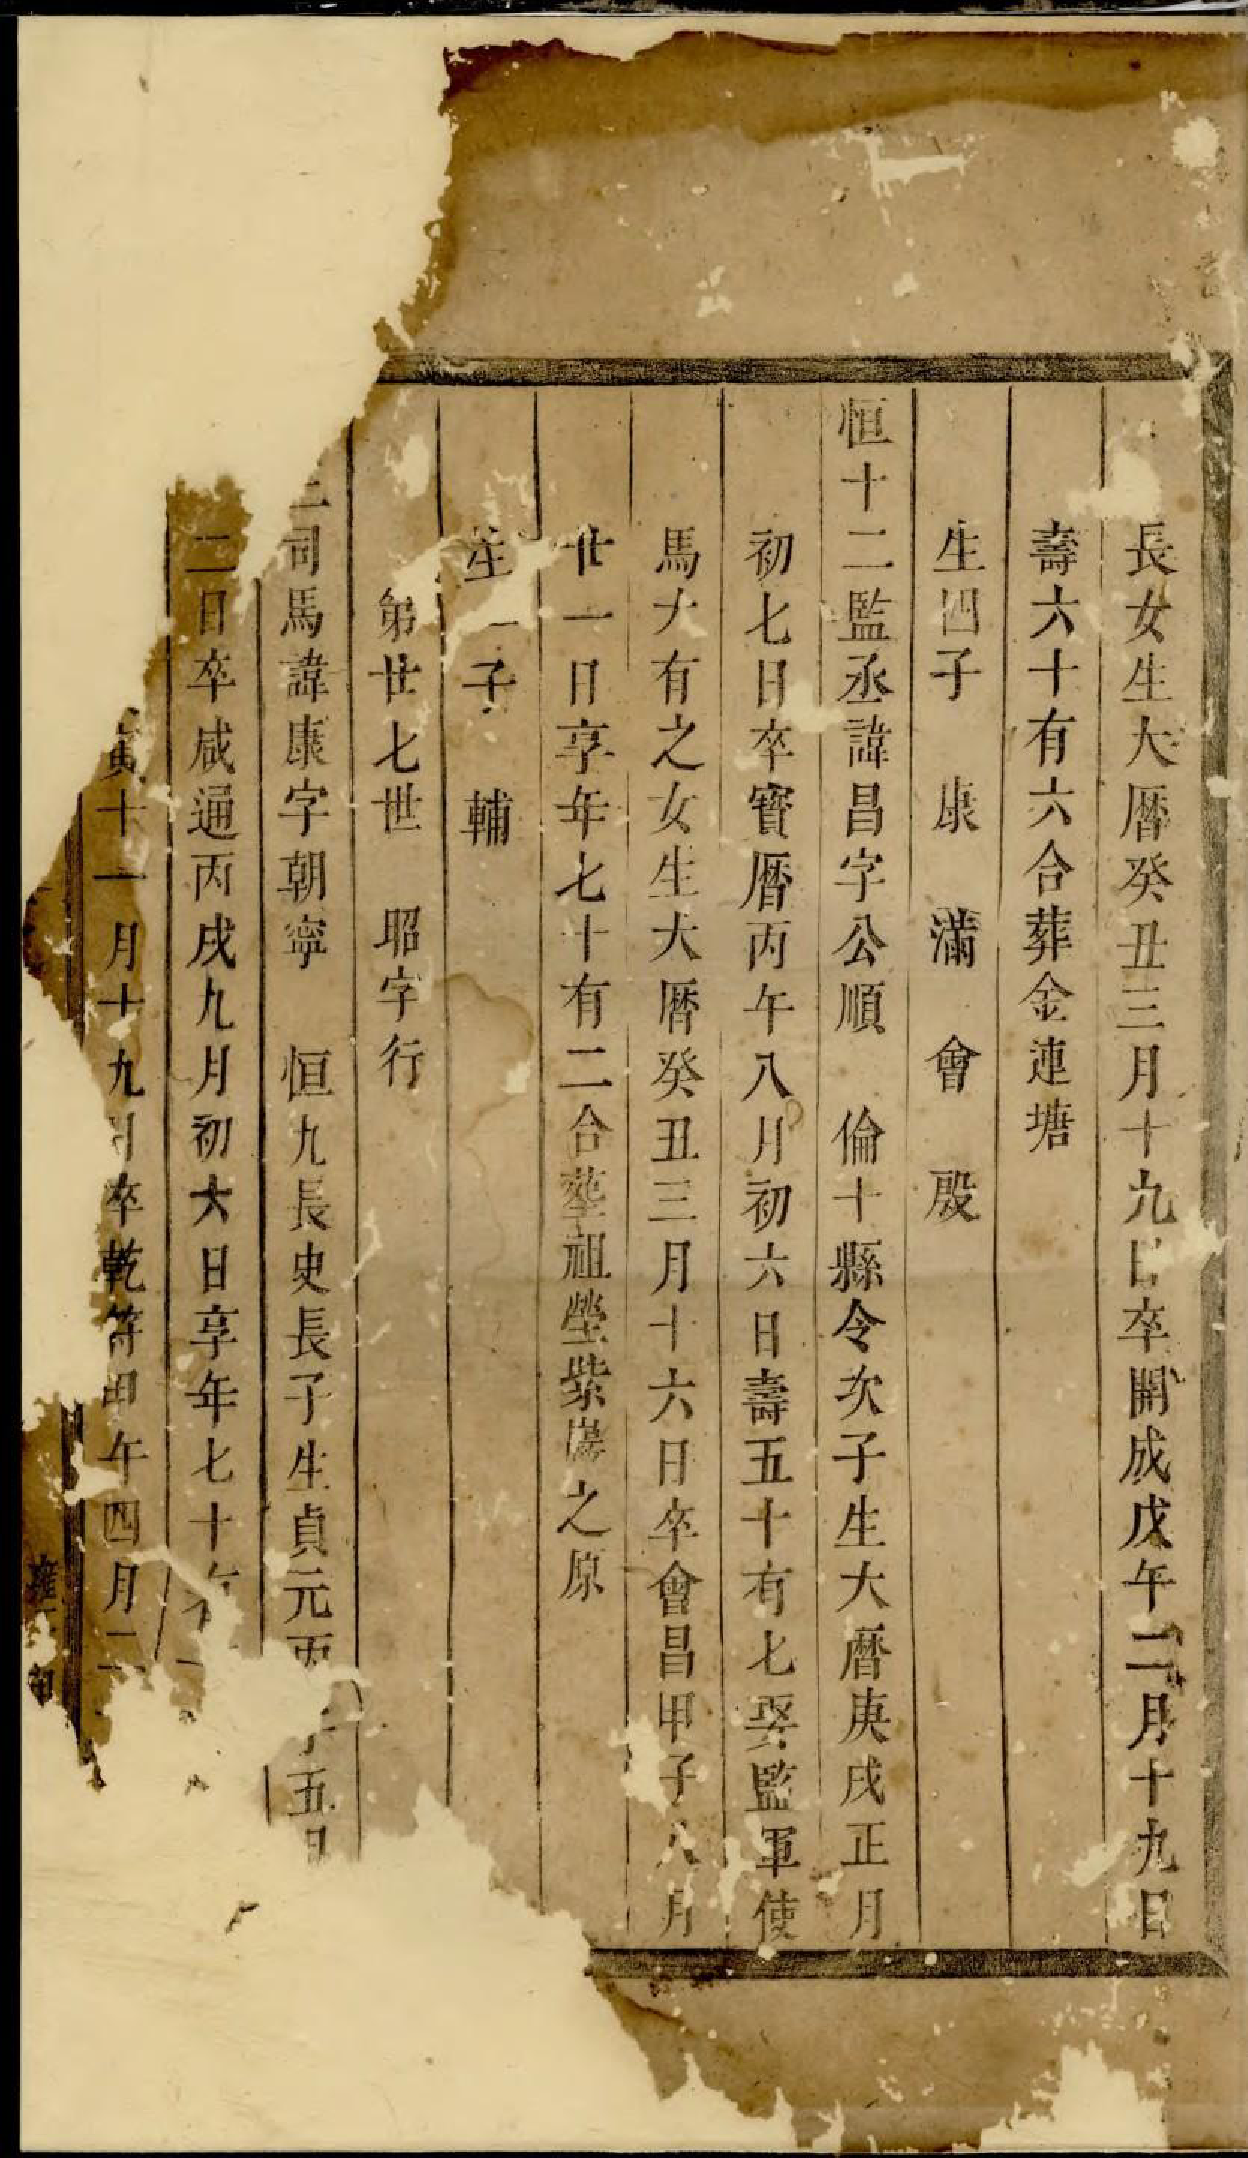 長女生大曆癸丑三月十九日卒開成戊午二月十九日
壽六十有六合葬金連塘
生四子 康 滿 會 殷
恒十二監丞諱昌字公順 倫十縣令次子生大曆庚戌正月
初七日卒寶曆丙午八月初六日壽五十有七娶監軍使
馬大有之女生大曆癸丑三月十六日卒會昌甲子八月
廿一日享年七十有二合塟祖塋紫 之原
生一子 輔
第廿七世 昭字行
司馬諱康字朝寧 恒九長史長子生貞元丙子五月
二日卒咸通丙戌九月初六日享年七十有一
寅十一月十九日卒乾符甲午四月二